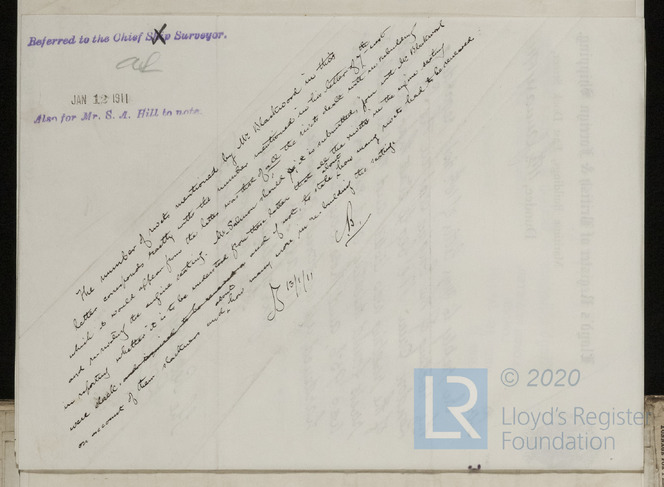 Referred to the Chief Ship Surveyor.
JAN 12 1911
Also for Mr. S. A. Hill to note.
The number of rivets mentioned by Mr. Blackwood in this
letter corresponds exactly with the number mentioned in his letter of 7th
which it would appear from the latter was that of all the rivets dealt with in rebuilding
and re-riveting the engine seating. Mr Salmon should, it is submitted, join with Mr Blackwood
in reporting whether it is to be understood from these letters that all the rivets in the engine seating
were slack, and if not, to state about how many rivets had to be renewed
on account of their slackness and about how many more in re-building the seatings.
B.
13/1/11
LR
© 2020
Lloyd's Register
Foundation